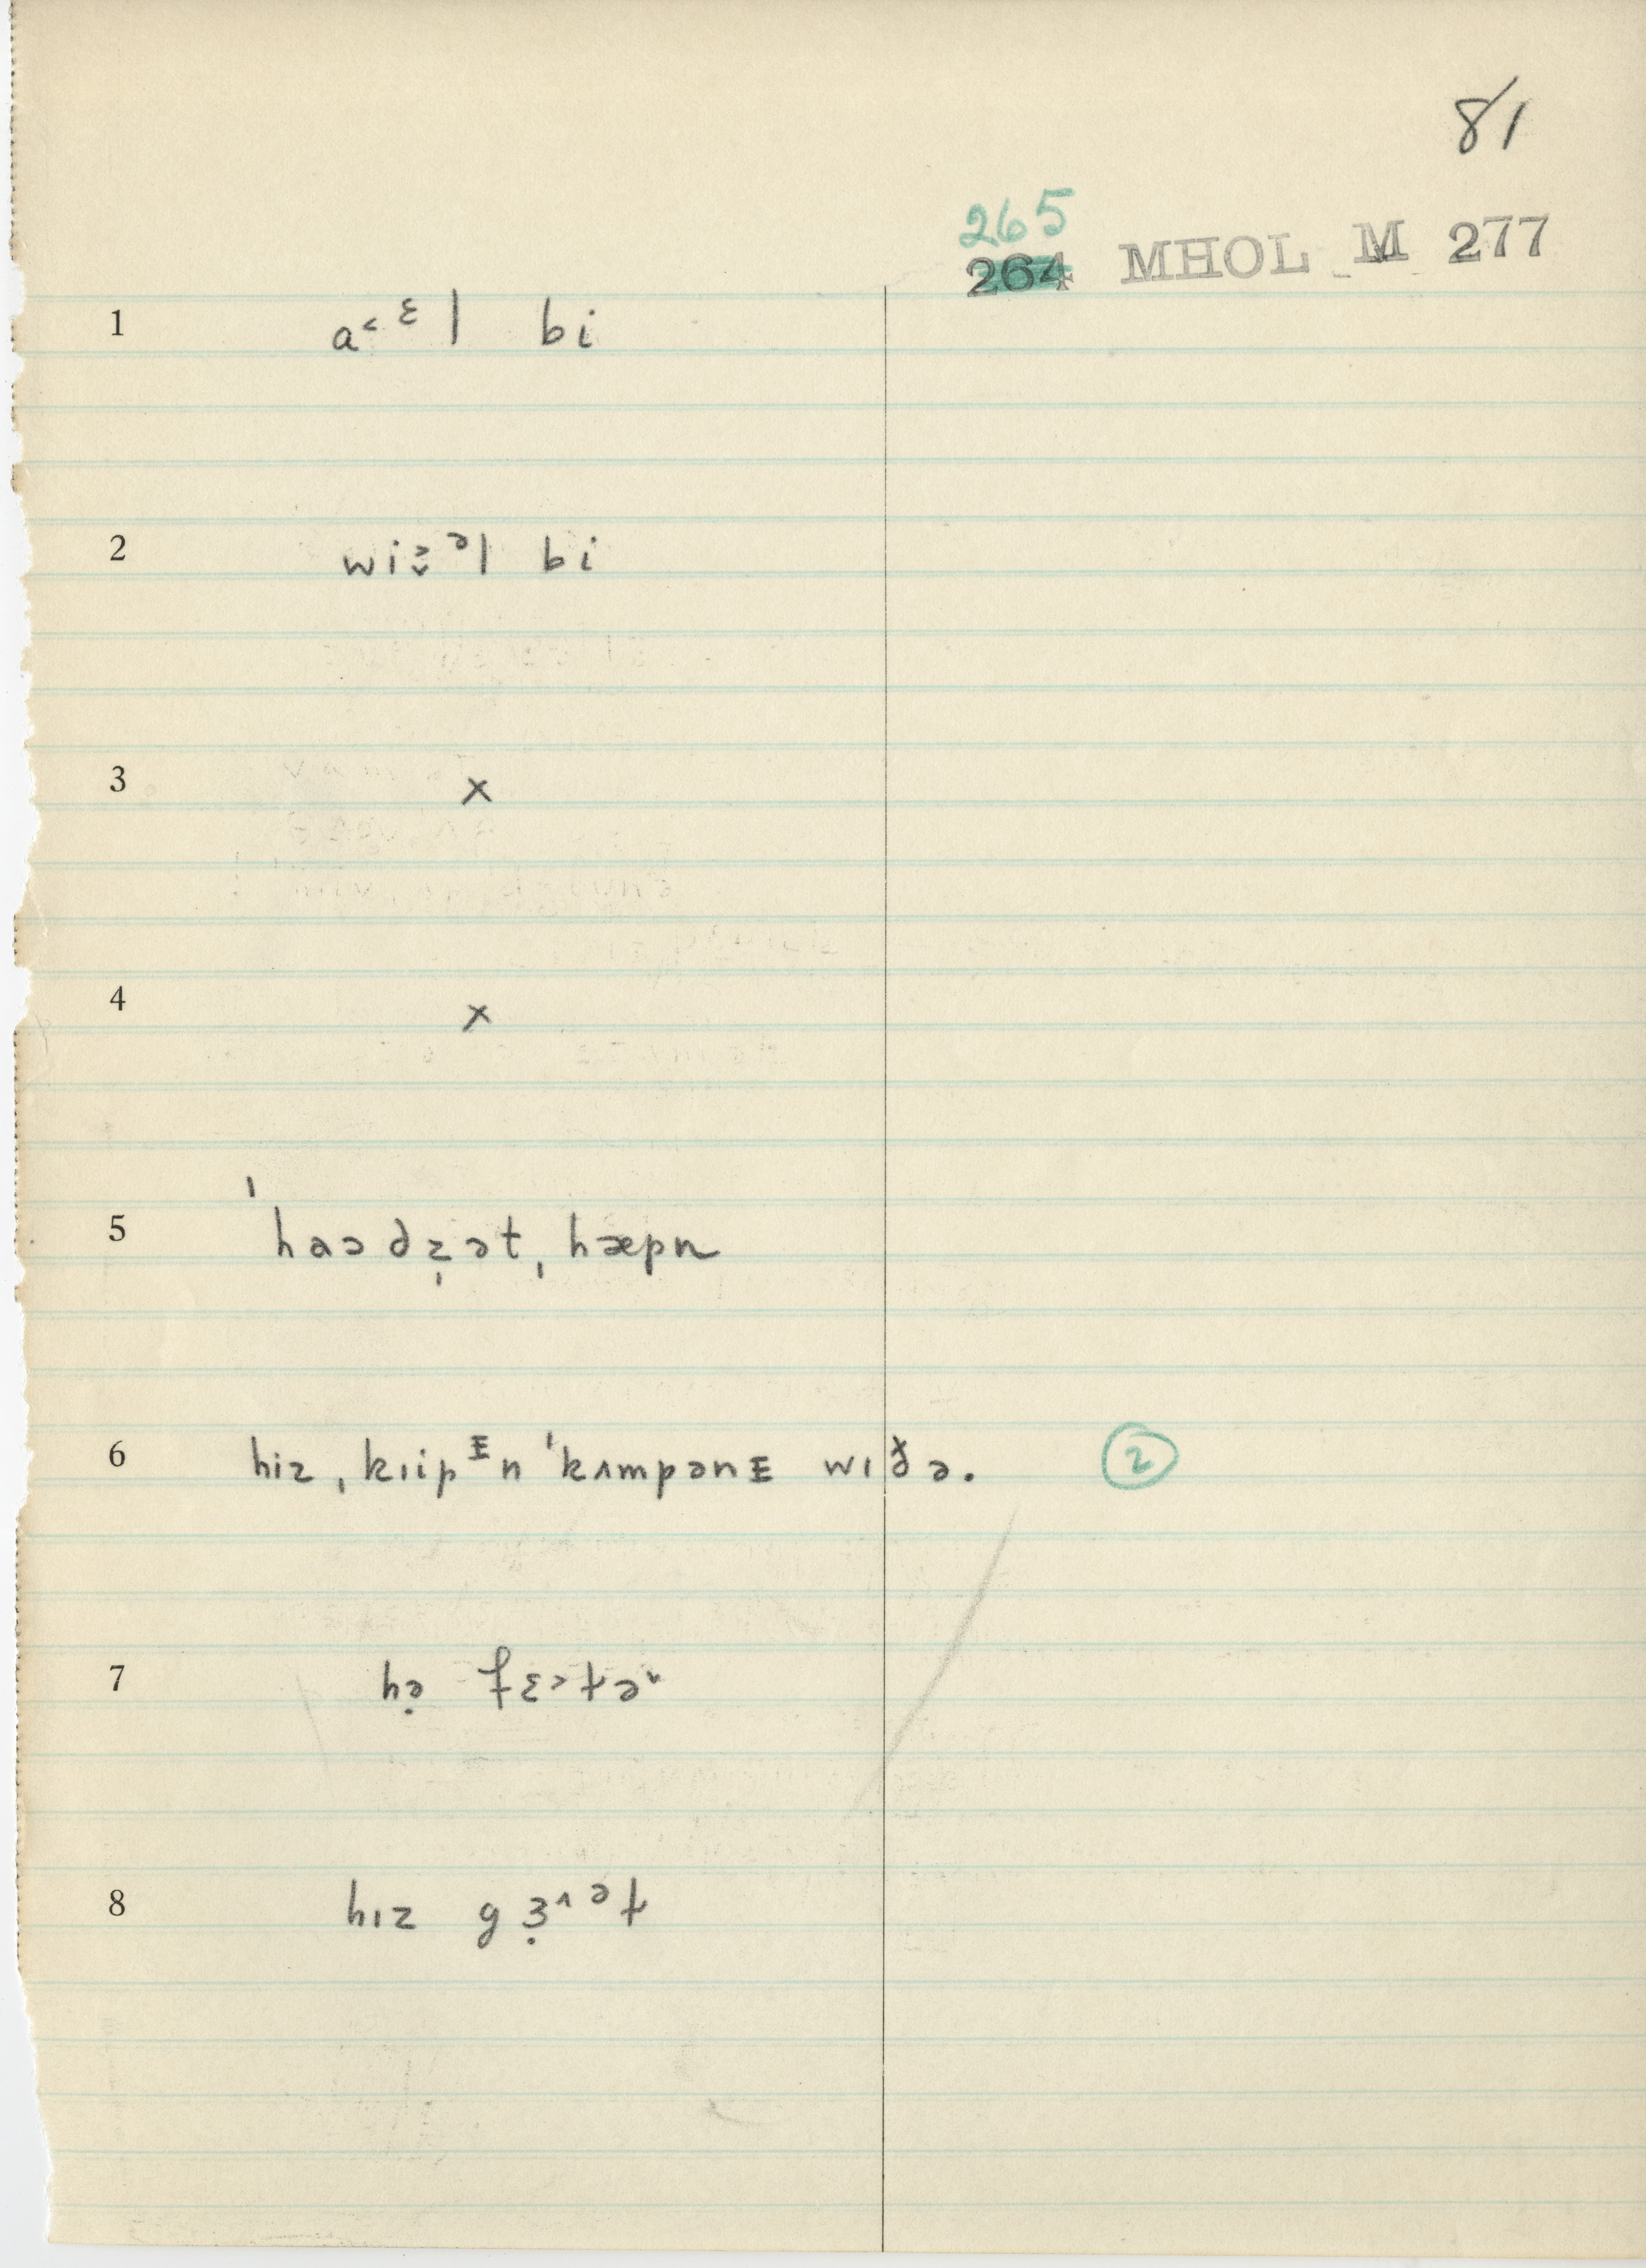 81
265
264 MHOL M 277
1 a˂ᵋl bi
2 wi ᵊl bi
3 x
4 x
5 ˈhaə dz̩ət ˌhæpn
6 hiz ˌkɪipᴵn ˈkʌmpənɪ wɪð̸ə. 2
7 hə̣ fɛ˃tɚ
8 hɪz gɜ̣˄ᵊt